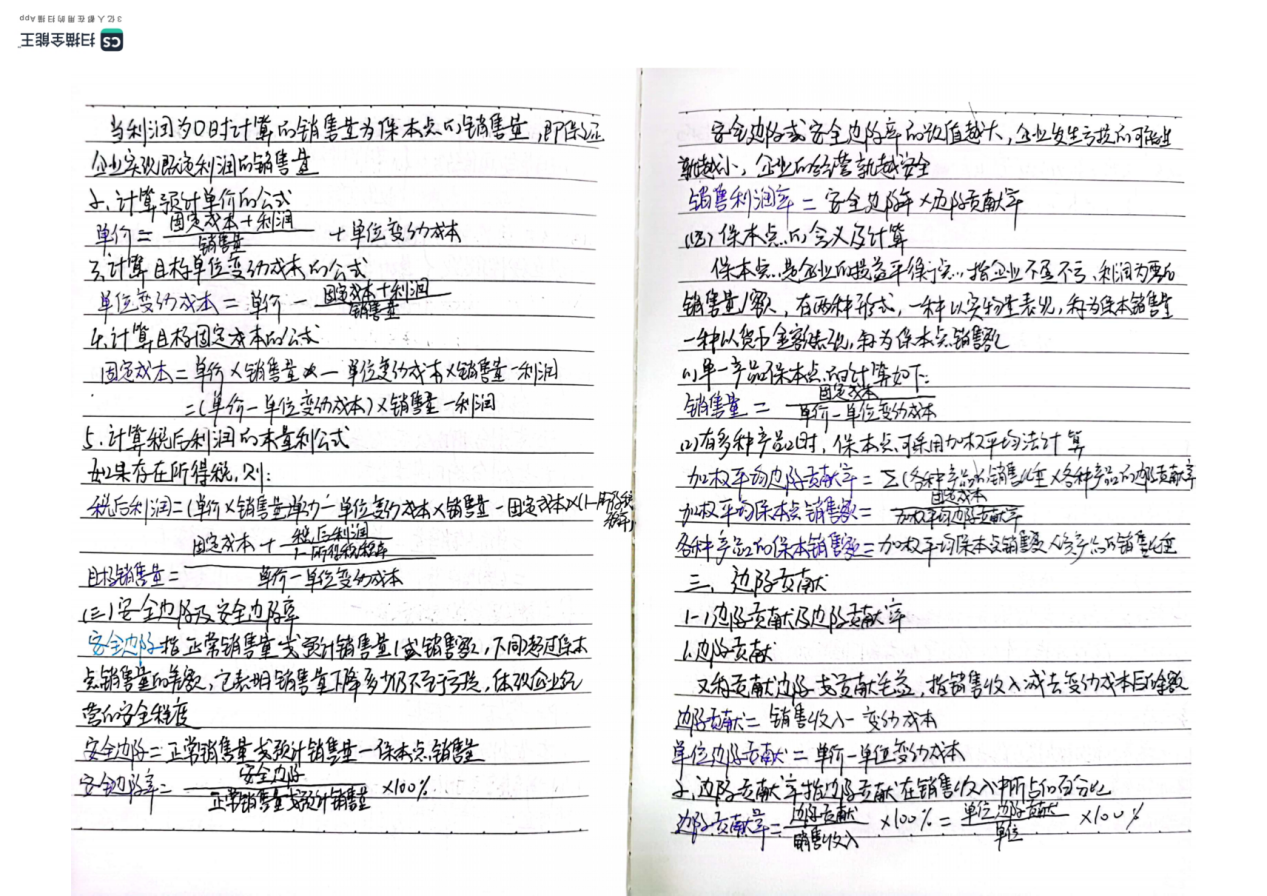 扫描全能王
3亿人都在用的扫描App
当利润为0时计算的销售量为保本点的销售量，即保证
企业实现既定利润的销售量
2.计算预计单价的公式
单价＝(固定成本＋利润)/销售量＋单位变动成本
3.计算目标单位变动成本的公式
单位变动成本＝单价－(固定成本＋利润)/销售量
4.计算目标固定成本的公式
固定成本＝单价×销售量－单位变动成本×销售量－利润
＝(单价－单位变动成本)×销售量－利润
5.计算税后利润的本量利公式
如果存在所得税,则:
税后利润＝(单价×销售量－单位变动成本×销售量－固定成本)×(1－所得税
税率)
目标销售量＝(固定成本＋税后利润/(1－所得税税率))/(单价－单位变动成本)
(三)安全边际及安全边际率
安全边际指正常销售量或预计销售量(或销售额,下同)超过保本
点销售量的差额,它表明销售量下降多少仍不至亏损,体现企业经
营的安全程度
安全边际＝正常销售量或预计销售量－保本点销售量
安全边际率＝安全边际/正常销售量或预计销售量×100%
安全边际或安全边际率的数值越大,企业发生亏损的可能性
就越小,企业的经营就越安全
销售利润率＝安全边际率×边际贡献率
(四)保本点的含义及计算
保本点是企业的损益平衡点,指企业不盈不亏,利润为零的
销售量/额,有两种形式,一种以实物量表现,称为保本销售量
一种以货币金额表现,称为保本点销售额
(1)单一产品保本点的计算如下:
销售量＝固定成本/(单价－单位变动成本)
(2)有多种产品时,保本点可采用加权平均法计算
加权平均边际贡献率＝Σ(各种产品的销售比重×各种产品的边际贡献率
加权平均保本点销售额＝固定成本/加权平均边际贡献率
各种产品的保本销售额＝加权平均保本点销售额×各产品的销售比重
三、边际贡献
(一)边际贡献及边际贡献率
1.边际贡献
又称贡献边际或贡献毛益,指销售收入减去变动成本后的余额
边际贡献＝销售收入－变动成本
单位边际贡献＝单价－单位变动成本
2.边际贡献率指边际贡献在销售收入中所占的百分比
边际贡献率＝边际贡献/销售收入×100%＝单位边际贡献/单位×100%